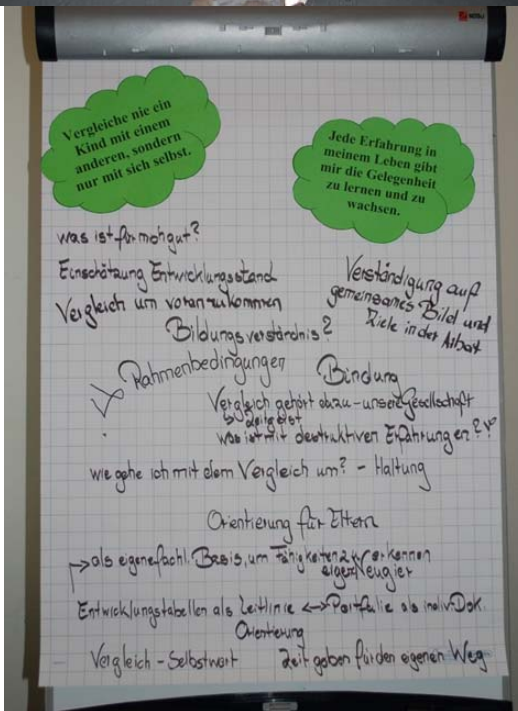 Vergleiche nie ein
Kind mit einem
anderen, sondern
nur mit sich selbst.
Jede Erfahrung in
meinem Leben gibt
mir die Gelegenheit
zu lernen und zu
wachsen.
was ist für mich gut?
Einschätzung Entwicklungsstand
Vergleich um voranzukommen
Verständigung auf
gemeinsames Bild und
Ziele in der Arbeit
Bildungsverständnis?
Rahmenbedingungen
Bindung
Vergleich gehört dazu - unsere Gesellschaft
Zeitgeist
was ist mit destruktiven Erfahrungen?
wie gehe ich mit dem Vergleich um? - Haltung
Orientierung für Eltern
→ als eigene fachl. Basis, um Fähigkeiten zu erkennen
eigene Neugier
Entwicklungstabellen als Leitlinie <-> Portfolio als indiv. Dok.
Orientierung
Vergleich - Selbstwert
Zeit geben für den eigenen Weg